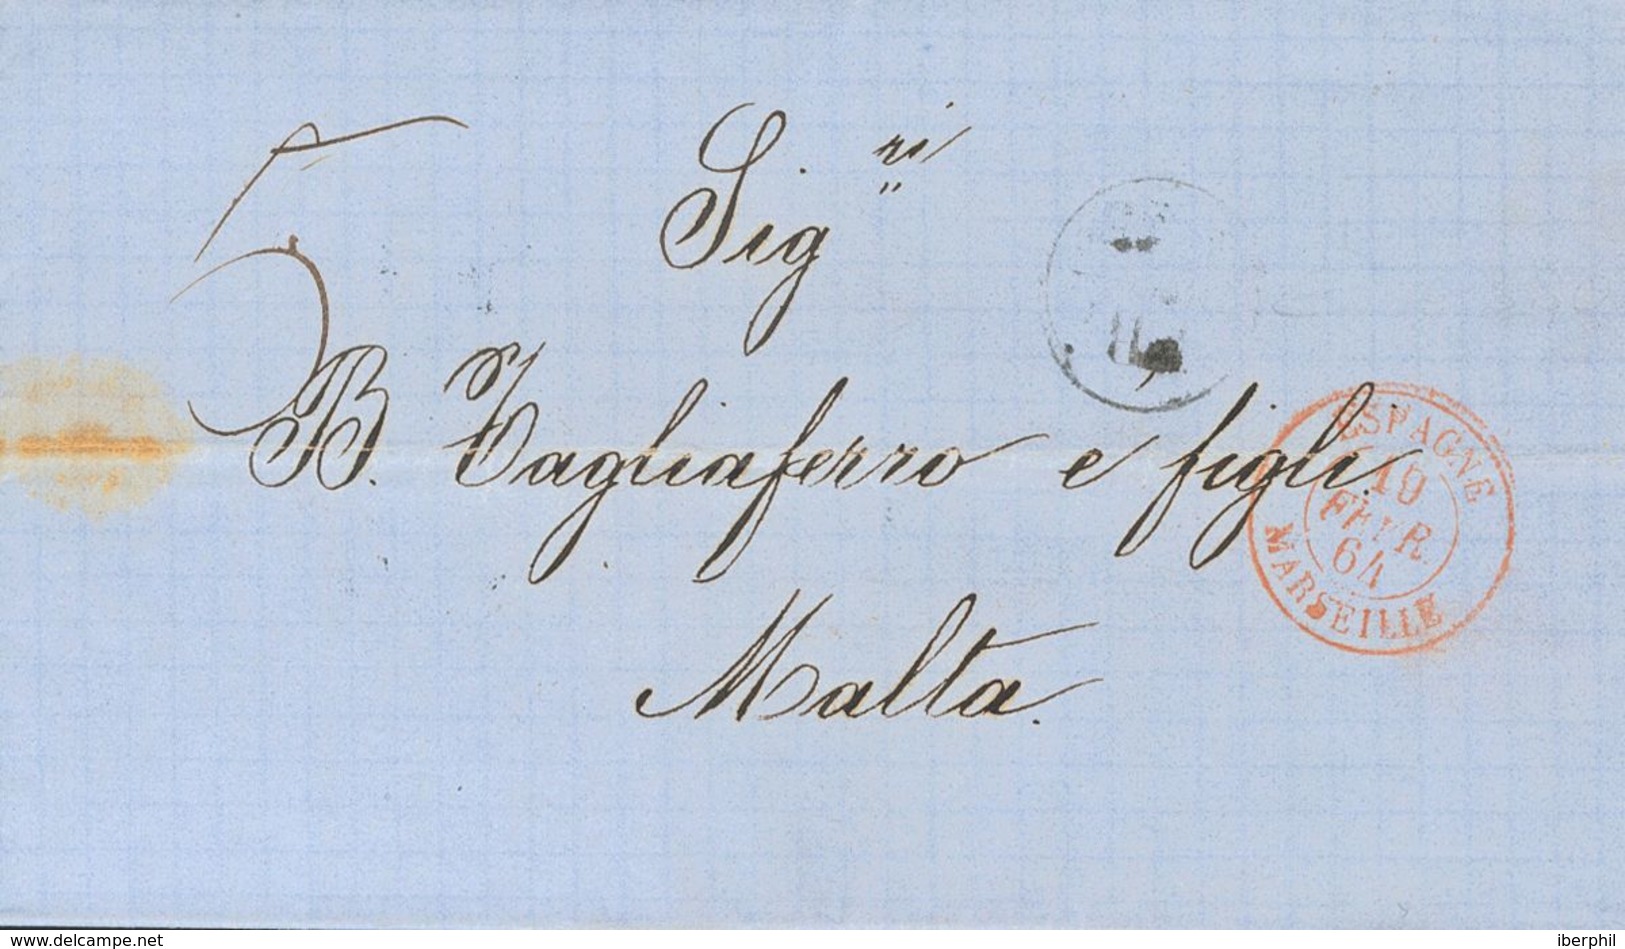 5
Sig.ri
B. Tagliaferro e figli.
Malta.
ESPAGNE
19
FEVR.
64
MARSEILLE
www.delcampe.net
iberphil